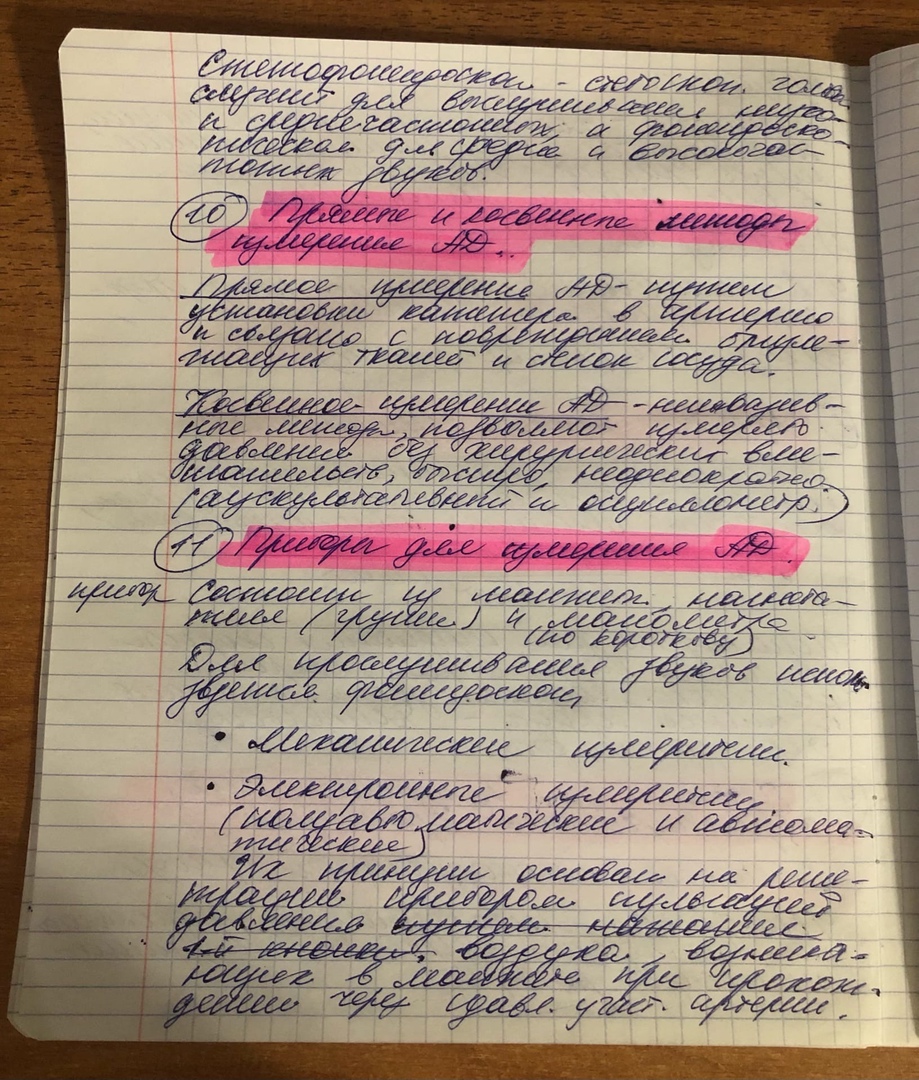 Стетофонендоскоп - стетоскоп. голов
служит для выслушивания низко-
и среднечастотных, а фонендоско-
пическая для средне и высокочас-
тотных звуков.
10 Прямые и косвенные методы
измерения АД.
Прямое измерение АД - путем
установки катетера в артерию
и связано с повреждением близле-
жащих тканей и стенок сосуда.
Косвенное измерение АД - неинвазив-
ные методы, позволяют измерять
давление без хирургических вме-
шательств, быстро, неоднократно
(аускультативный и осциллометр.)
11 Приборы для измерения АД.
прибор Состоит из манжеты, нагнета-
теля (груши) и манометра
(по короткову)
Для прослушивания звуков исполь
зуется фонендоскоп,
• Механические измерители.
• Электронные измерители
(полуавтоматические и автома-
тические)
Их принцип основан на реги-
трации прибором пульсаций
давления путем нажатия
1-й кнопки. воздуха, возника-
ющих в манжете при прохож-
дении через сдавл. участ. артерии.